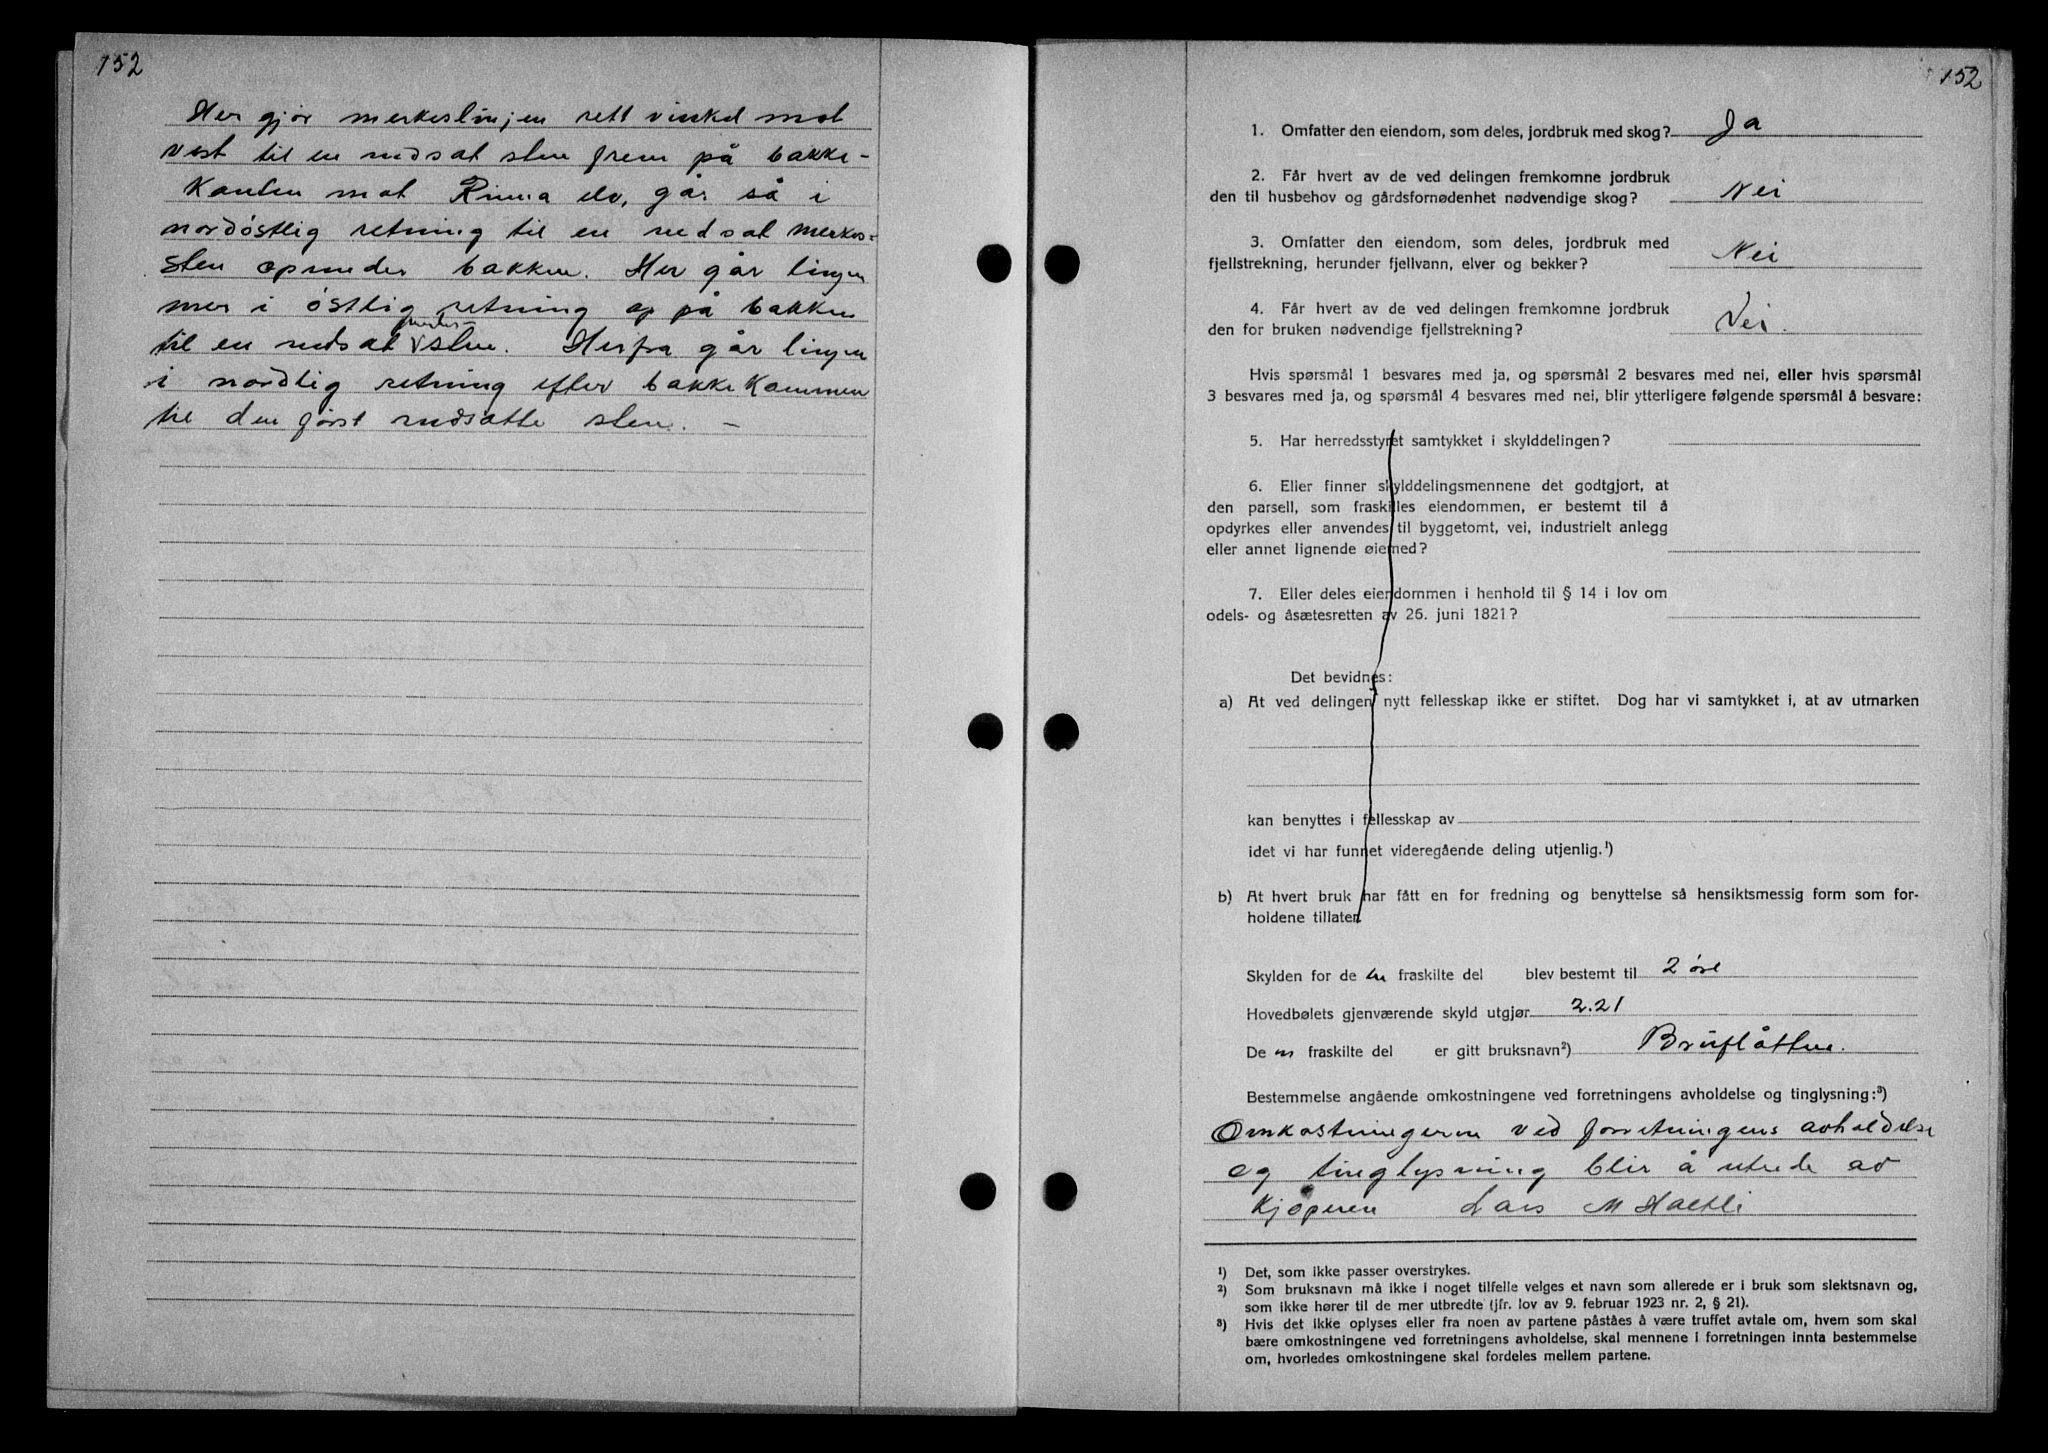 152
Her gjør merkeslinjen rett vinkel mot
vest til en nedsat sten frem på bakke-
kanten mot Rinna elv, går så i
nordöstlig retning til en nedsat merkes-
sten opunder bakken. Her går linjen
mer i östlig retning op på bakken
til en nedsat merkes- sten. Herfra går linjen
i nordlig retning efter bakkekammen
til den först nedsatte sten. –
152
1. Omfatter den eiendom, som deles, jordbruk med skog? Ja
2. Får hvert av de ved delingen fremkomne jordbruk
den til husbehov og gårdsfornødenhet nødvendige skog? Nei
3. Omfatter den eiendom, som deles, jordbruk med
fjellstrekning, herunder fjellvann, elver og bekker? Nei
4. Får hvert av de ved delingen fremkomne jordbruk
den for bruken nødvendige fjellstrekning? Nei.
Hvis spørsmål 1 besvares med ja, og spørsmål 2 besvares med nei, eller hvis spørsmål
3 besvares med ja, og spørsmål 4 besvares med nei, blir ytterligere følgende spørsmål å besvare:
5. Har herredsstyret samtykket i skylddelingen?
6. Eller finner skylddelingsmennene det godtgjort, at
den parsell, som fraskilles eiendommen, er bestemt til å
opdyrkes eller anvendes til byggetomt, vei, industrielt anlegg
eller annet lignende øiemed?
7. Eller deles eiendommen i henhold til § 14 i lov om
odels- og åsætesretten av 26. juni 1821?
Det bevidnes:
a) At ved delingen nytt fellesskap ikke er stiftet. Dog har vi samtykket i, at av utmarken
kan benyttes i fellesskap av
idet vi har funnet videregående deling utjenlig.¹)
b) At hvert bruk har fått en for fredning og benyttelse så hensiktsmessig form som for-
holdene tillater.
Skylden for de n fraskilte del blev bestemt til 2 öre
Hovedbølets gjenværende skyld utgjør 2.21
De n fraskilte del er gitt bruksnavn²) Bruflåtten.
Bestemmelse angående omkostningene ved forretningens avholdelse og tinglysning:³)
Omkostningerne ved forretningens avholdelse
og tinglysning blir å utrede av
kjöperen Lars M Haetli
¹) Det, som ikke passer overstrykes.
²) Som bruksnavn må ikke i noget tilfelle velges et navn som allerede er i bruk som slektsnavn og,
som ikke hører til de mer utbredte (jfr. lov av 9. februar 1923 nr. 2, § 21).
³) Hvis det ikke oplyses eller fra noen av partene påståes å være truffet avtale om, hvem som skal
bære omkostningene ved forretningens avholdelse, skal mennene i forretningen innta bestemmelse
om, hvorledes omkostningene skal fordeles mellem partene.